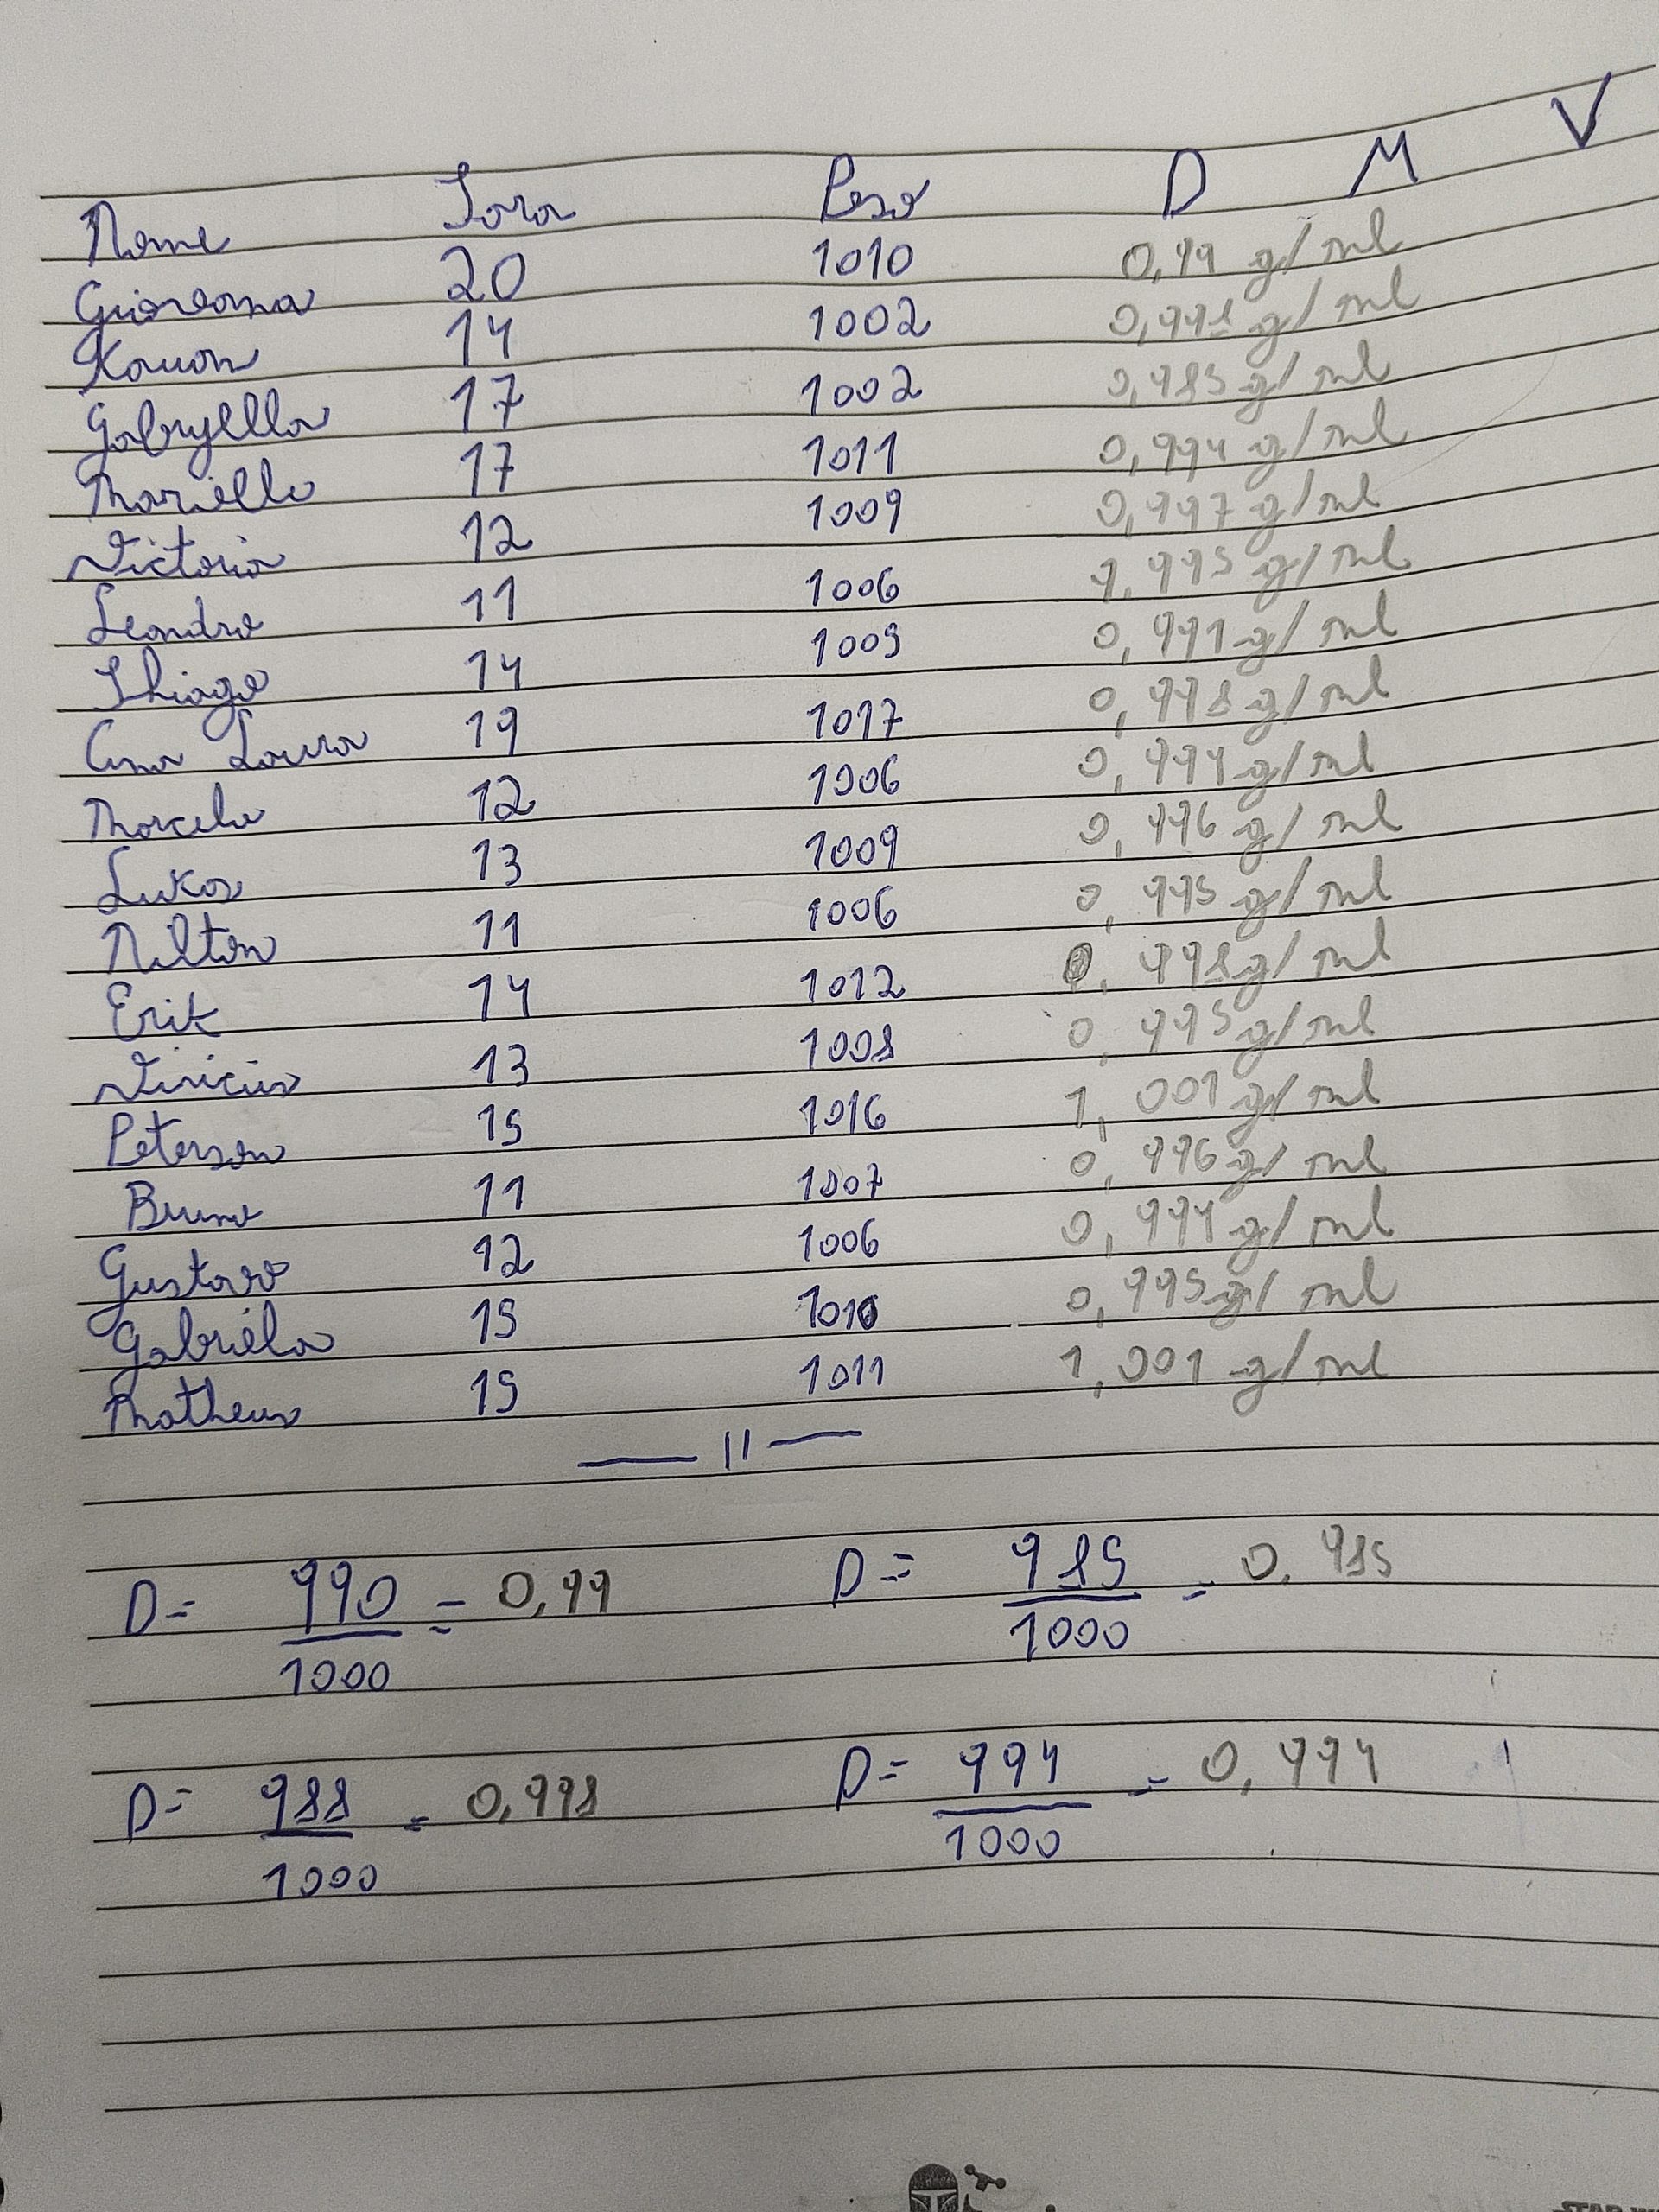 Nome Tara Peso D M V
Giovanna 20 1010 0,99 g/ml
Kauan 14 1002 0,998 g/ml
Gabryella 17 1002 0,985 g/ml
Marielle 17 1011 0,994 g/ml
Victoria 12 1009 0,997 g/ml
Leandro 11 1006 0,995 g/ml
Thiago 14 1005 0,991 g/ml
Ana Laura 19 1017 0,998 g/ml
Marcelo 12 1006 0,994 g/ml
Lukas 13 1009 0,996 g/ml
Nilton 11 1006 0,995 g/ml
Erik 14 1012 0,998 g/ml
Vinicius 13 1008 0,995 g/ml
Peterson 15 1016 1,001 g/ml
Bruno 11 1007 0,996 g/ml
Gustavo 12 1006 0,994 g/ml
Gabriela 15 1010 0,995 g/ml
Matheus 15 1011 1,001 g/ml
— 11 —
D= 990 = 0,99 D= 985 = 0,985
1000 1000
D= 988 = 0,998 D= 994 = 0,994
1000 1000